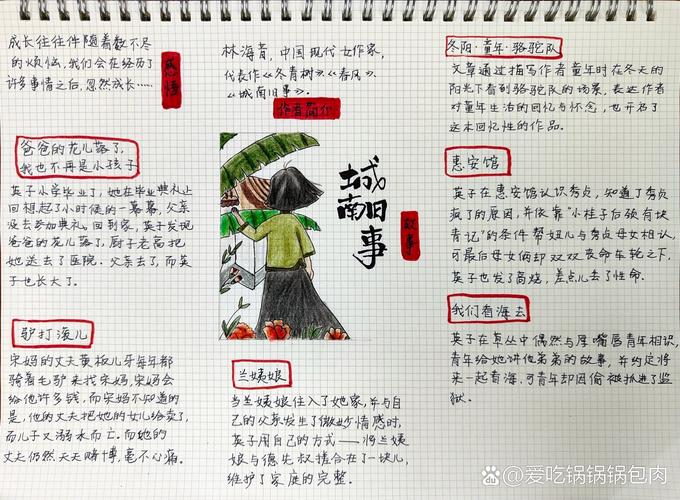 成长往往伴随着数不尽
的烦恼,我们会在经历了
许多事情之后,忽然成长……
感悟
林海音,中国现代女作家,
代表作《冬青树》《春风》、
《城南旧事》。
作者简介
冬阳·童年·骆驼队
文章通过描写作者童年时在冬天的
阳光下看到骆驼队的场景,表达作者
对童年生活的回忆与怀念,也开启了
这本回忆性的作品。
爸爸的花儿落了,
我也不再是小孩子
英子小学毕业了,她在毕业典礼上
回想起了小时候的一幕幕,父亲
没去参加典礼。回到家,英子发现
爸爸的花儿落了,厨子老高把
她送去了医院。父亲去了,而英
子也长大了。
城南旧事
故事
惠安馆
英子在惠安馆认识秀贞,知道了秀贞
疯了的原因,并依靠“小桂子后颈有块
青记”的条件帮妞儿与秀贞母女相认,
可最后母女俩却双双丧命车轮之下,
英子也发了高烧,差点儿去了性命。
驴打滚儿
宋妈的丈夫黄板儿牙每年都
骑着毛驴来找宋妈,宋妈会
给他许多钱,而宋妈不知道的
是,他的丈夫把她的女儿给卖了,
而儿子又溺水而亡。而她的
丈夫仍然天天赌博,毫不心痛。
兰姨娘
当兰姨娘住入了她家,并与自
己的父亲发生了微妙情感时,
英子用自己的方式——将兰姨
娘与德先叔撮合在了一块儿,
维护了家庭的完整。
我们看海去
英子在草丛中偶然与厚嘴唇青年相识,
青年给她讲他弟弟的故事,并约定将
来一起看海,可青年却因偷被抓进了监
狱。
@爱吃锅锅锅包肉